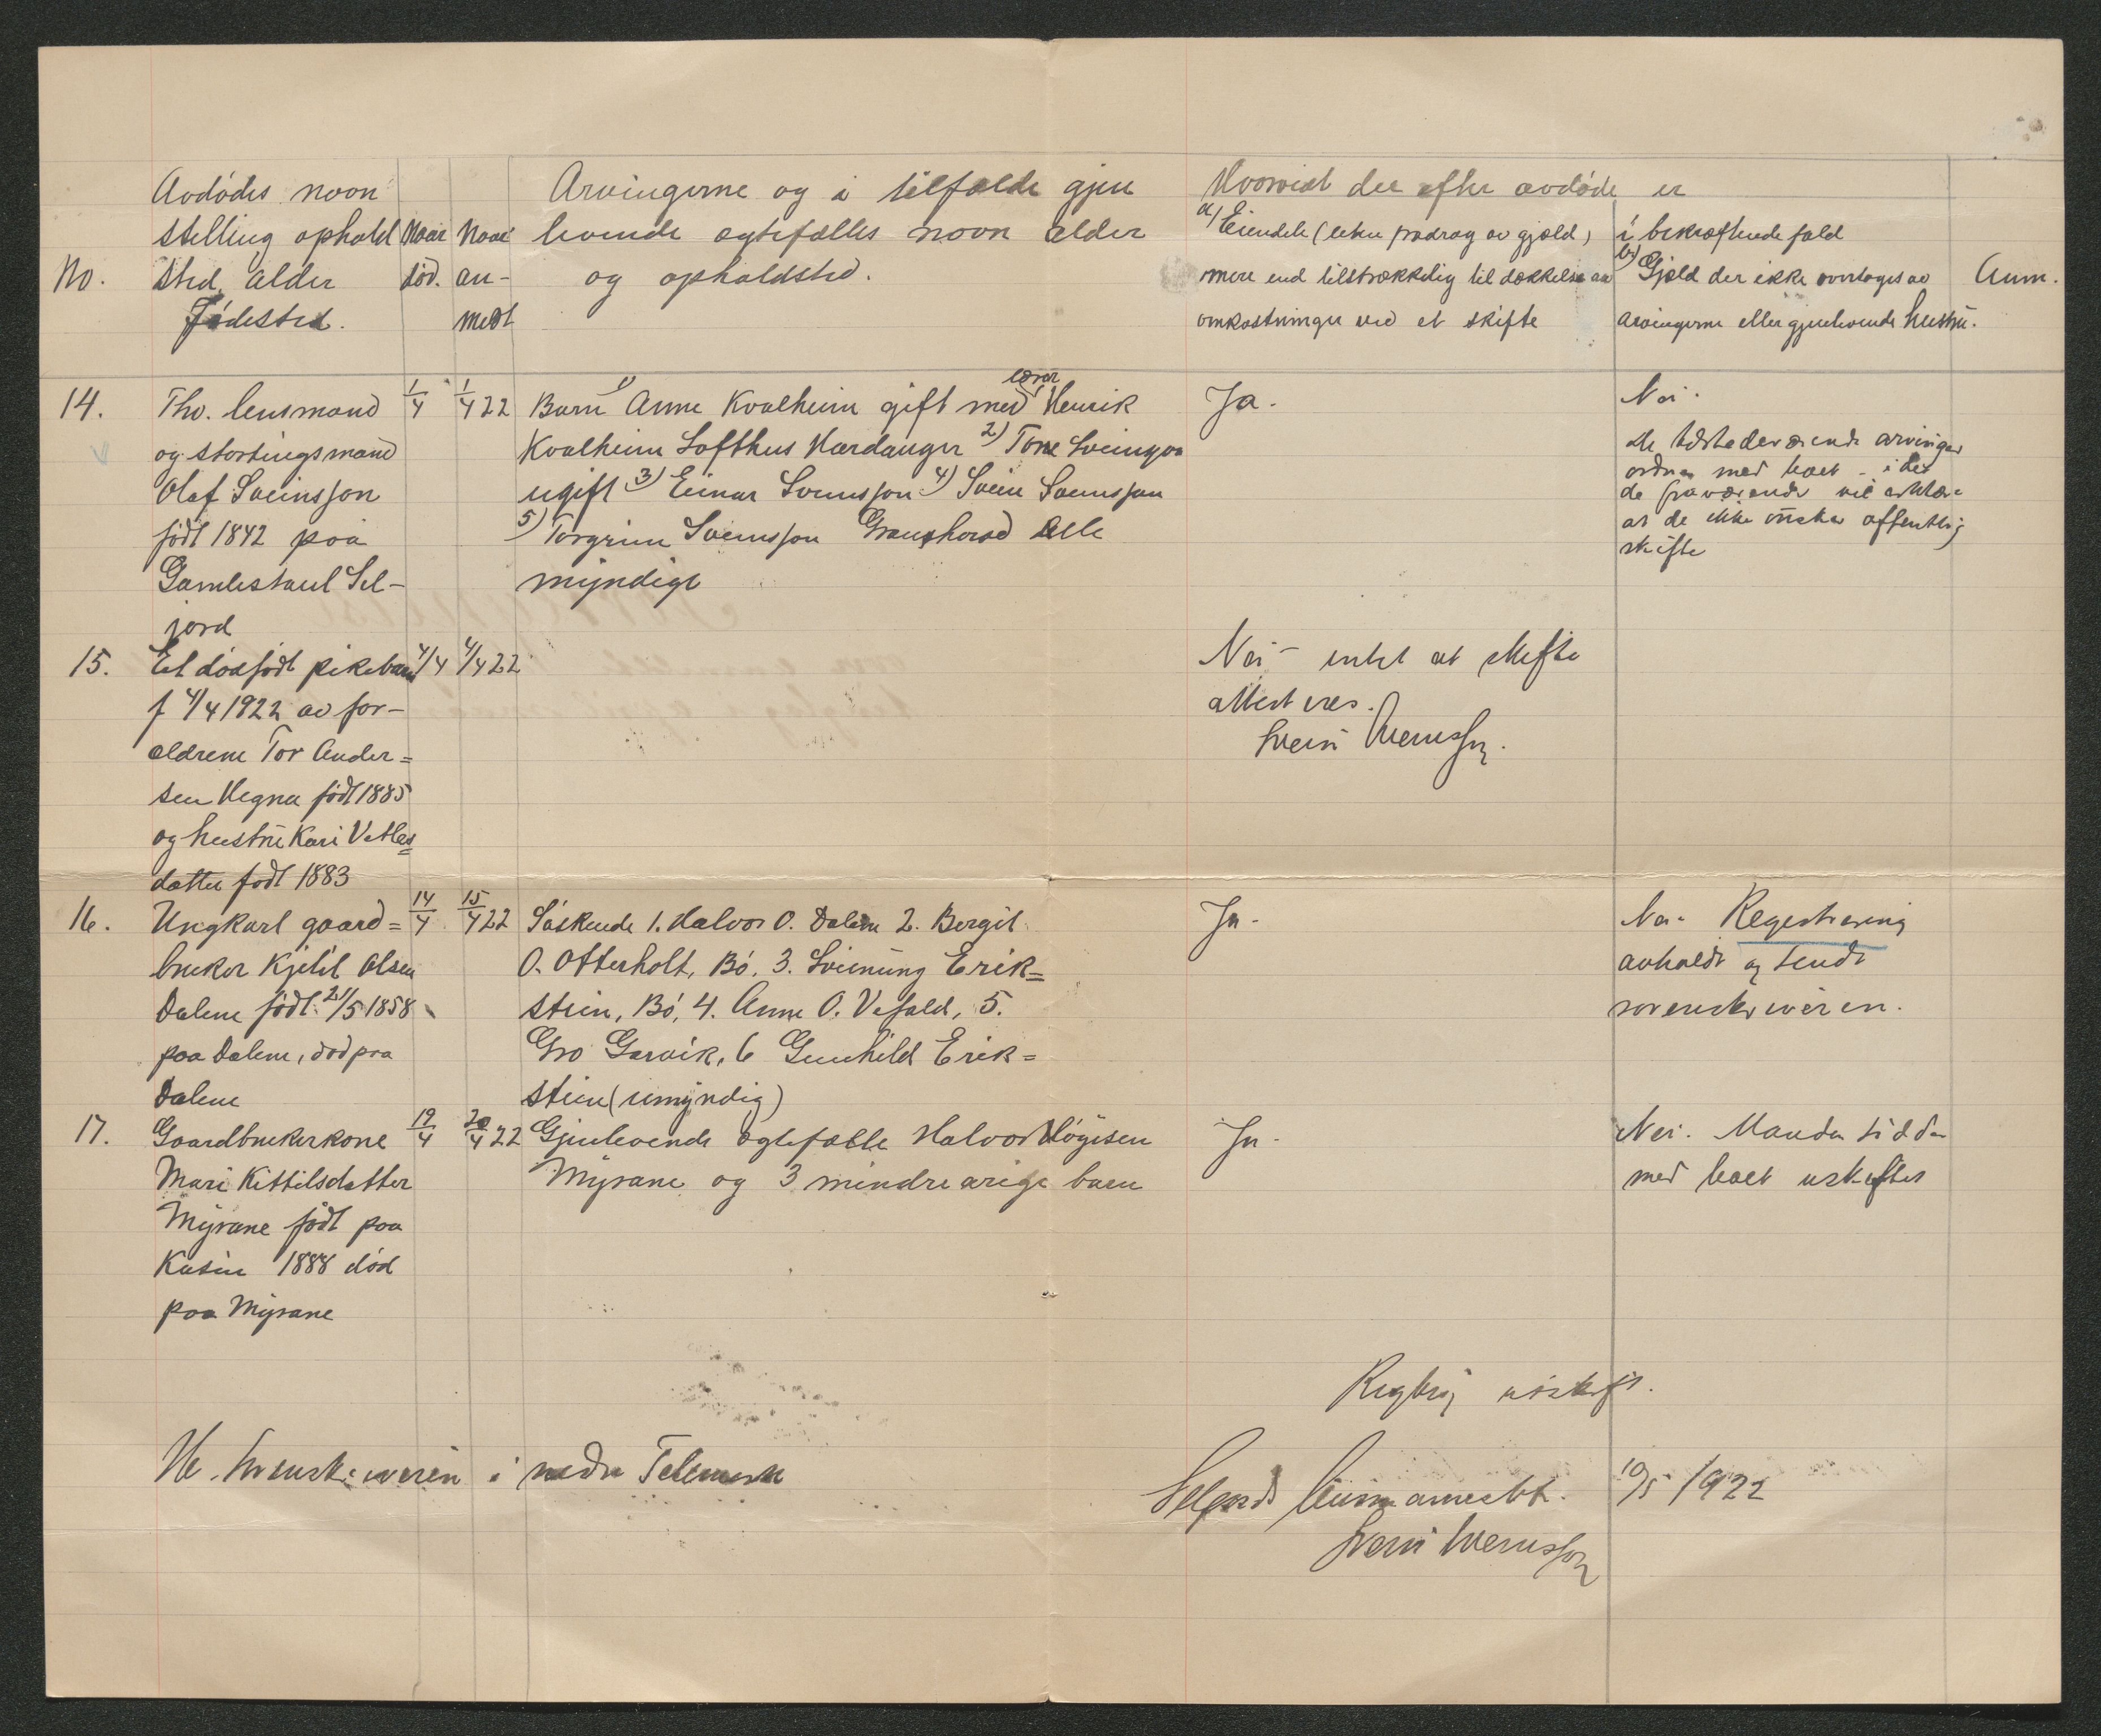 No.
Avdødes navn
stelling ophold
sted, alder
Fødested.
Naar
død.
Naar
an-
meldt
Arvingerne og i tilfælde gjen
levende egtefælles navn alder
og opholdsted.
Hvorvidt der efter avdøde er
a) Eiendele (uten fradrag av gjæld)
mere end tilstrækkelig til dækkelse av
omkostninger ved et skifte
i bekræftende fald
b) Gjæld der ikke overtages av
arvingerne eller gjenlevende hustru.
Anm.
14.
Fhv. lensmand
og stortingsmand
Olaf Sveinsson
født 1842 paa
Gamlestaul Sel-
jord
1/4
1/4 22
Barn 1) Anne Kvalheim gift med lærer Henrik
Kvalheim Lofthus Hardanger 2) Tone Sveinsson
ugift 3) Einar Sveinsson 4) Svein Sveinsson
5) Torgrim Sveinsson Gransherad Alle
myndige
Ja.
Nei.
De tilstedeværende arvinger
ordner med boet - i det
de fraværende vil erklære
at de ikke ønsker offentlig
skifte
15.
Et dødfødt pikebarn
f 4/4 1922 av for-
ældrene Tor Ander=
sen Hegna født 1885
og hustru Kari Vetles=
datter født 1883
4/4
4/4 22
Nei - intet at skifte
attesteres.
Svein Sveinsson.
16.
Ungkarl gaard=
bruker Kjetil Olsen
Dalene født 21/5 1858
paa Dalene, død paa
Dalene
14/4
15/4 22
Søskende 1. Halvor O. Dalene 2. Bergit
O. Otterholt, Bø, 3. Sveinung Erik=
stein, Bø, 4. Anne O. Vefald, 5.
Gro Garvik, 6 Gunhild Erik=
stein (umyndig)
Ja.
Nei. Registrering
avholdt og sendt
sorenskriveren.
17.
Gaardbrukerkone
Mari Kittilsdatter
Myrane født paa
Kasin 1888 død
paa Myrane
19/4
20/4 22
Gjenlevende egtefælle Halvor Høgisen
Myrane og 3 mindreårige barn
Ja.
Nei. Manden sidder
med boet uskiftet
Rigtig utskrift.
Hr. Sorenskriveren i nedre Telemark
Seljords lensmannsktr. 10/5 1922
Svein Sveinsson